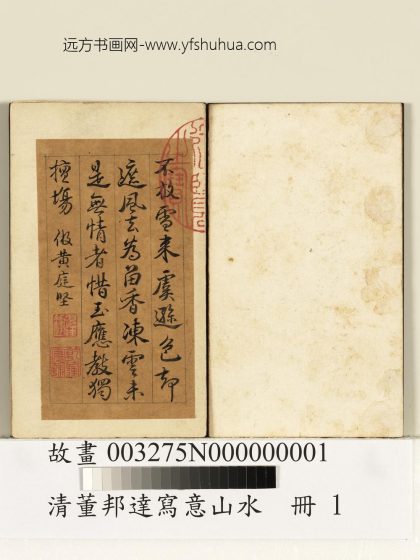 远方书画网-www.yfshuhua.com
不放雪来虞遜色却
遮風去為苗香凍雲未
是無情者惜玉應教獨
擅場 倣黃庭堅
故畫 003275N000000001
清董邦達寫意山水 冊 1